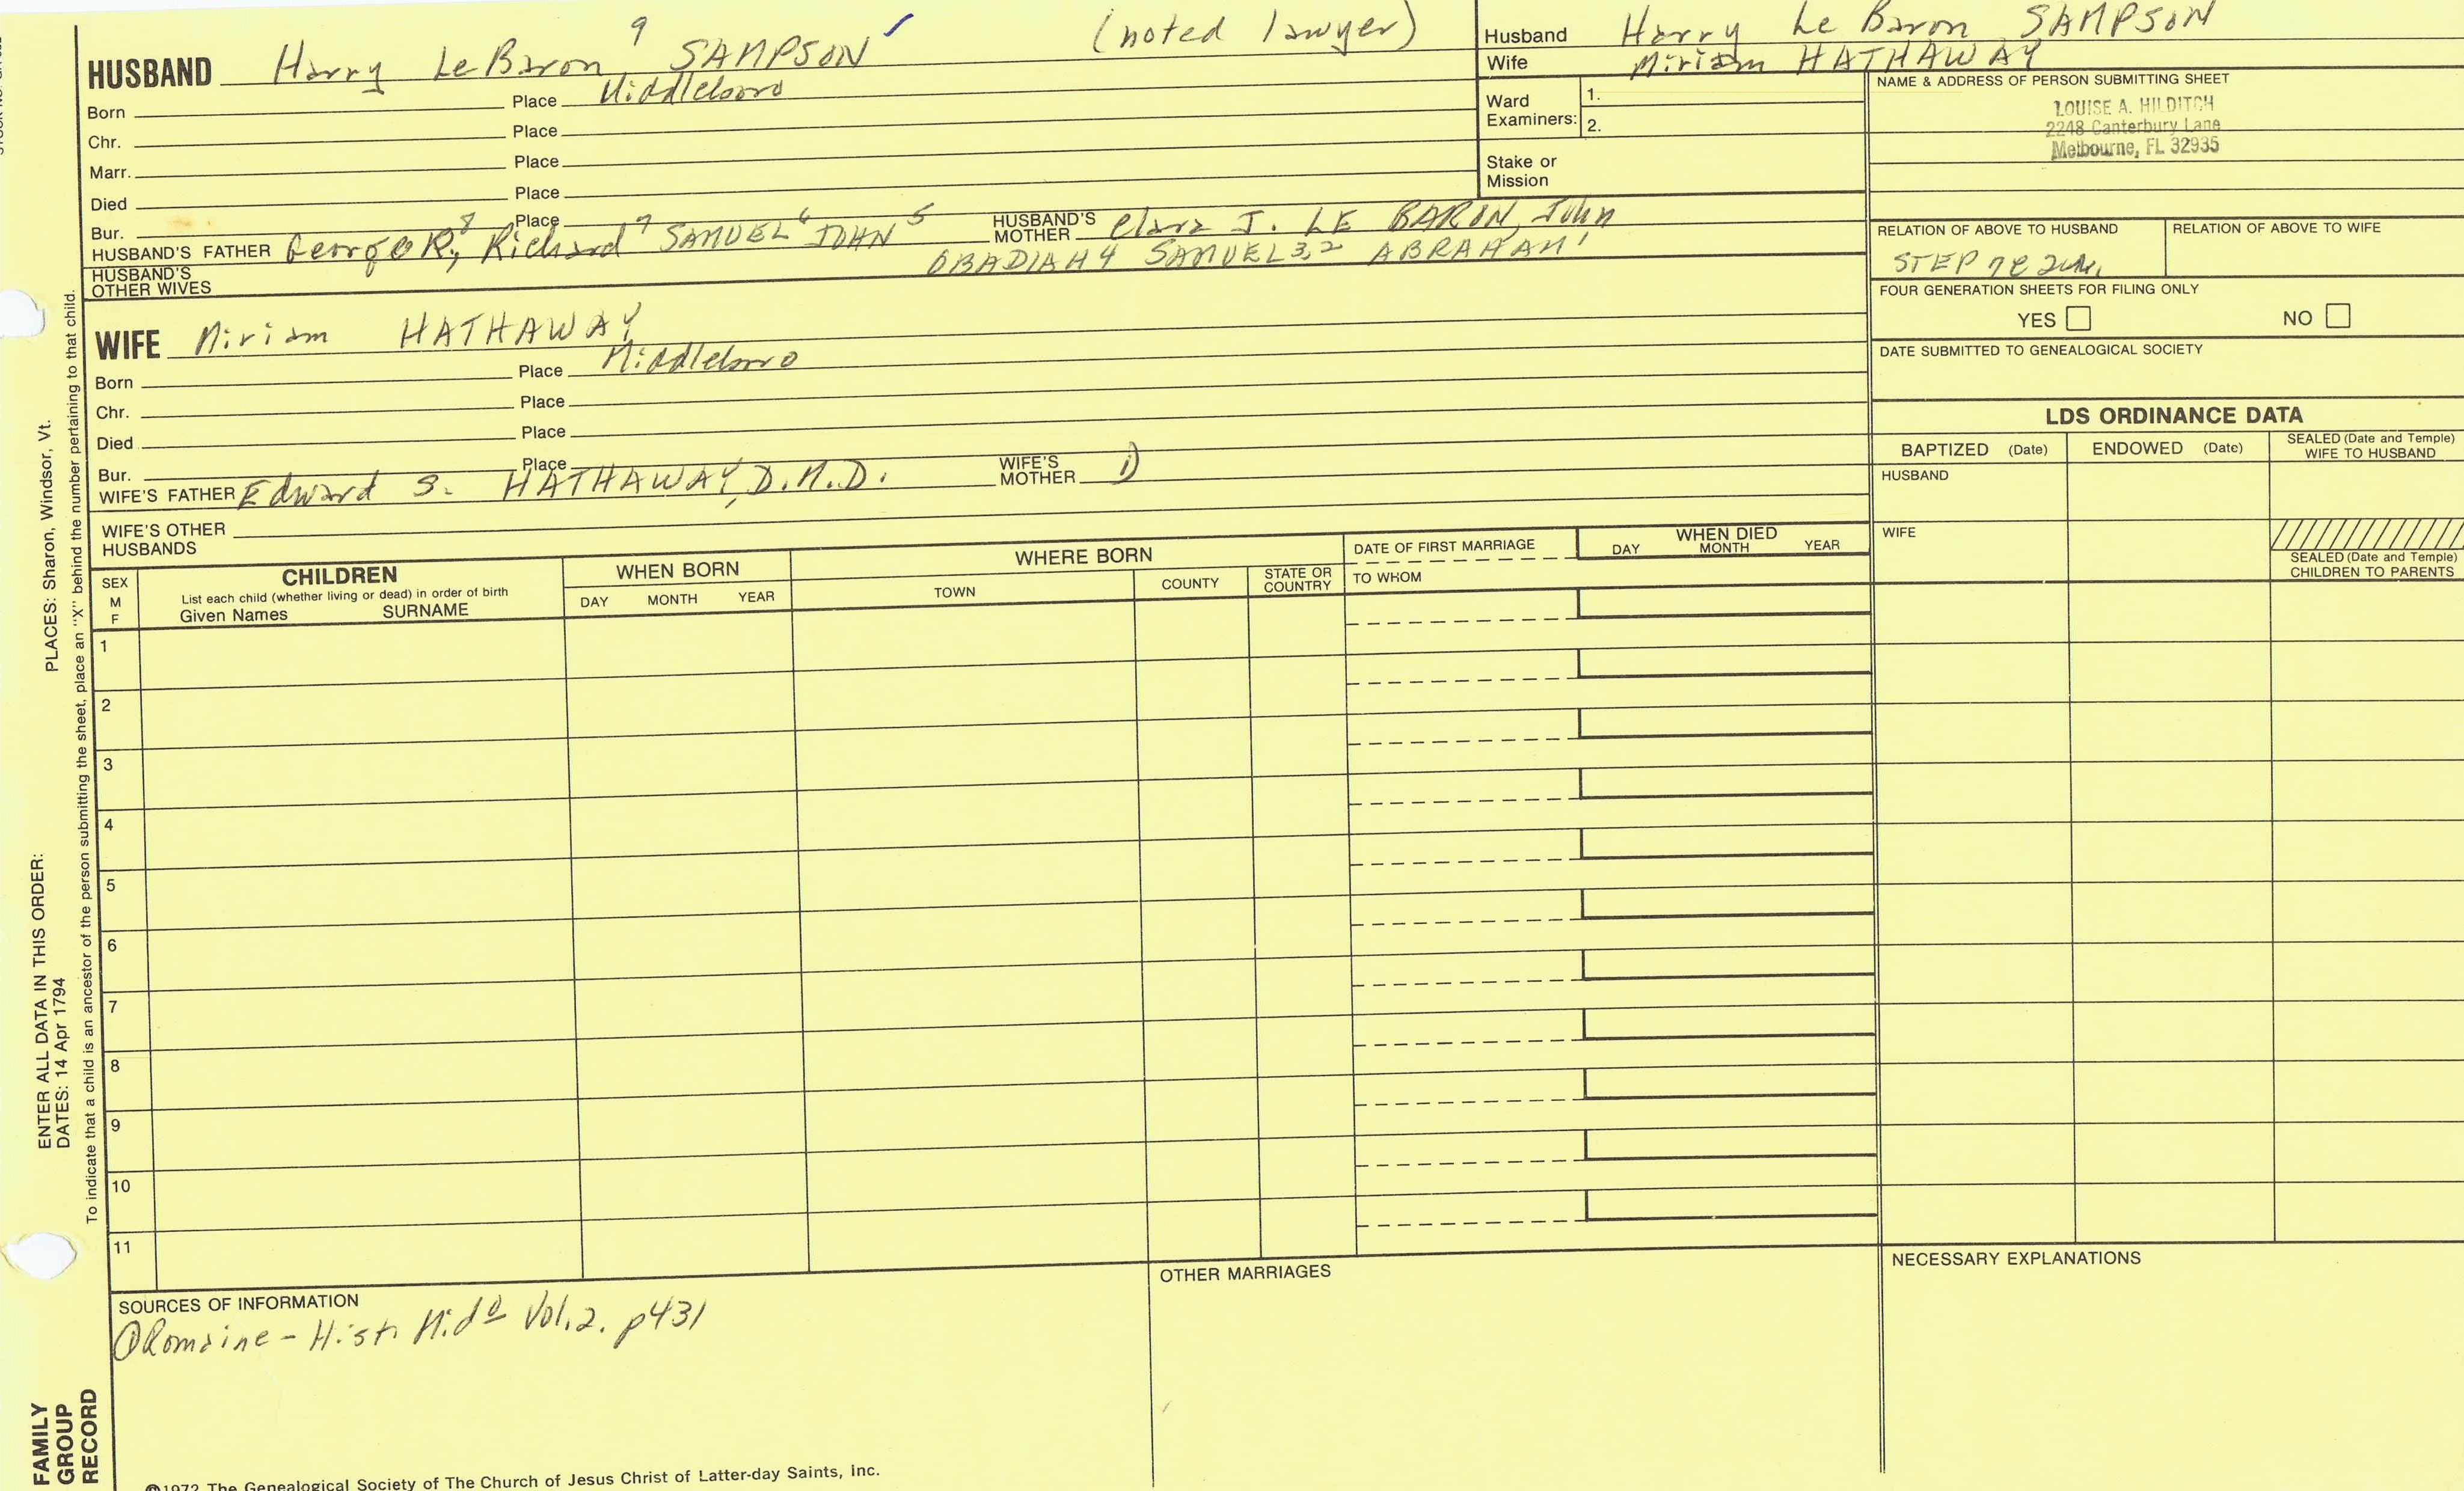 HUSBAND Harry LeBaron 9 SAMPSON (noted lawyer)
Born Place Middleboro
Chr. Place
Marr. Place
Died Place
Bur. Place
HUSBAND'S FATHER George R,8 Richard7 SAMUEL6 JOHN5 HUSBAND'S MOTHER Clara J. LE BARON, John
OBADIAH4 SAMUEL3,2 ABRAHAM1
HUSBAND'S OTHER WIVES
WIFE Miriam HATHAWAY
Born Place Middleboro
Chr. Place
Died Place
Bur. Place
WIFE'S FATHER Edward S. HATHAWAY, D.M.D. WIFE'S MOTHER
WIFE'S OTHER HUSBANDS
Husband Harry Le Baron SAMPSON
Wife Miriam HATHAWAY
Ward Examiners: 1.
2.
Stake or Mission
NAME & ADDRESS OF PERSON SUBMITTING SHEET
LOUISE A. HILDITCH
2248 Canterbury Lane
Melbourne, FL 32935
RELATION OF ABOVE TO HUSBAND RELATION OF ABOVE TO WIFE
STEP
FOUR GENERATION SHEETS FOR FILING ONLY
YES NO
DATE SUBMITTED TO GENEALOGICAL SOCIETY
LDS ORDINANCE DATA
BAPTIZED (Date) ENDOWED (Date) SEALED (Date and Temple) WIFE TO HUSBAND
HUSBAND
WIFE
SEALED (Date and Temple) CHILDREN TO PARENTS
SEX M F
CHILDREN
List each child (whether living or dead) in order of birth
Given Names SURNAME
WHEN BORN
DAY MONTH YEAR
WHERE BORN
TOWN COUNTY STATE OR COUNTRY
DATE OF FIRST MARRIAGE
TO WHOM
WHEN DIED
DAY MONTH YEAR
1
2
3
4
5
6
7
8
9
10
11
SOURCES OF INFORMATION
① Romaine - Hist. Mid° Vol. 2. p431
OTHER MARRIAGES
NECESSARY EXPLANATIONS
©1972 The Genealogical Society of The Church of Jesus Christ of Latter-day Saints, Inc.
FAMILY GROUP RECORD
ENTER ALL DATA IN THIS ORDER:
DATES: 14 Apr 1794
PLACES: Sharon, Windsor, Vt.
To indicate that a child is an ancestor of the person submitting the sheet, place an "X" behind the number pertaining to that child.